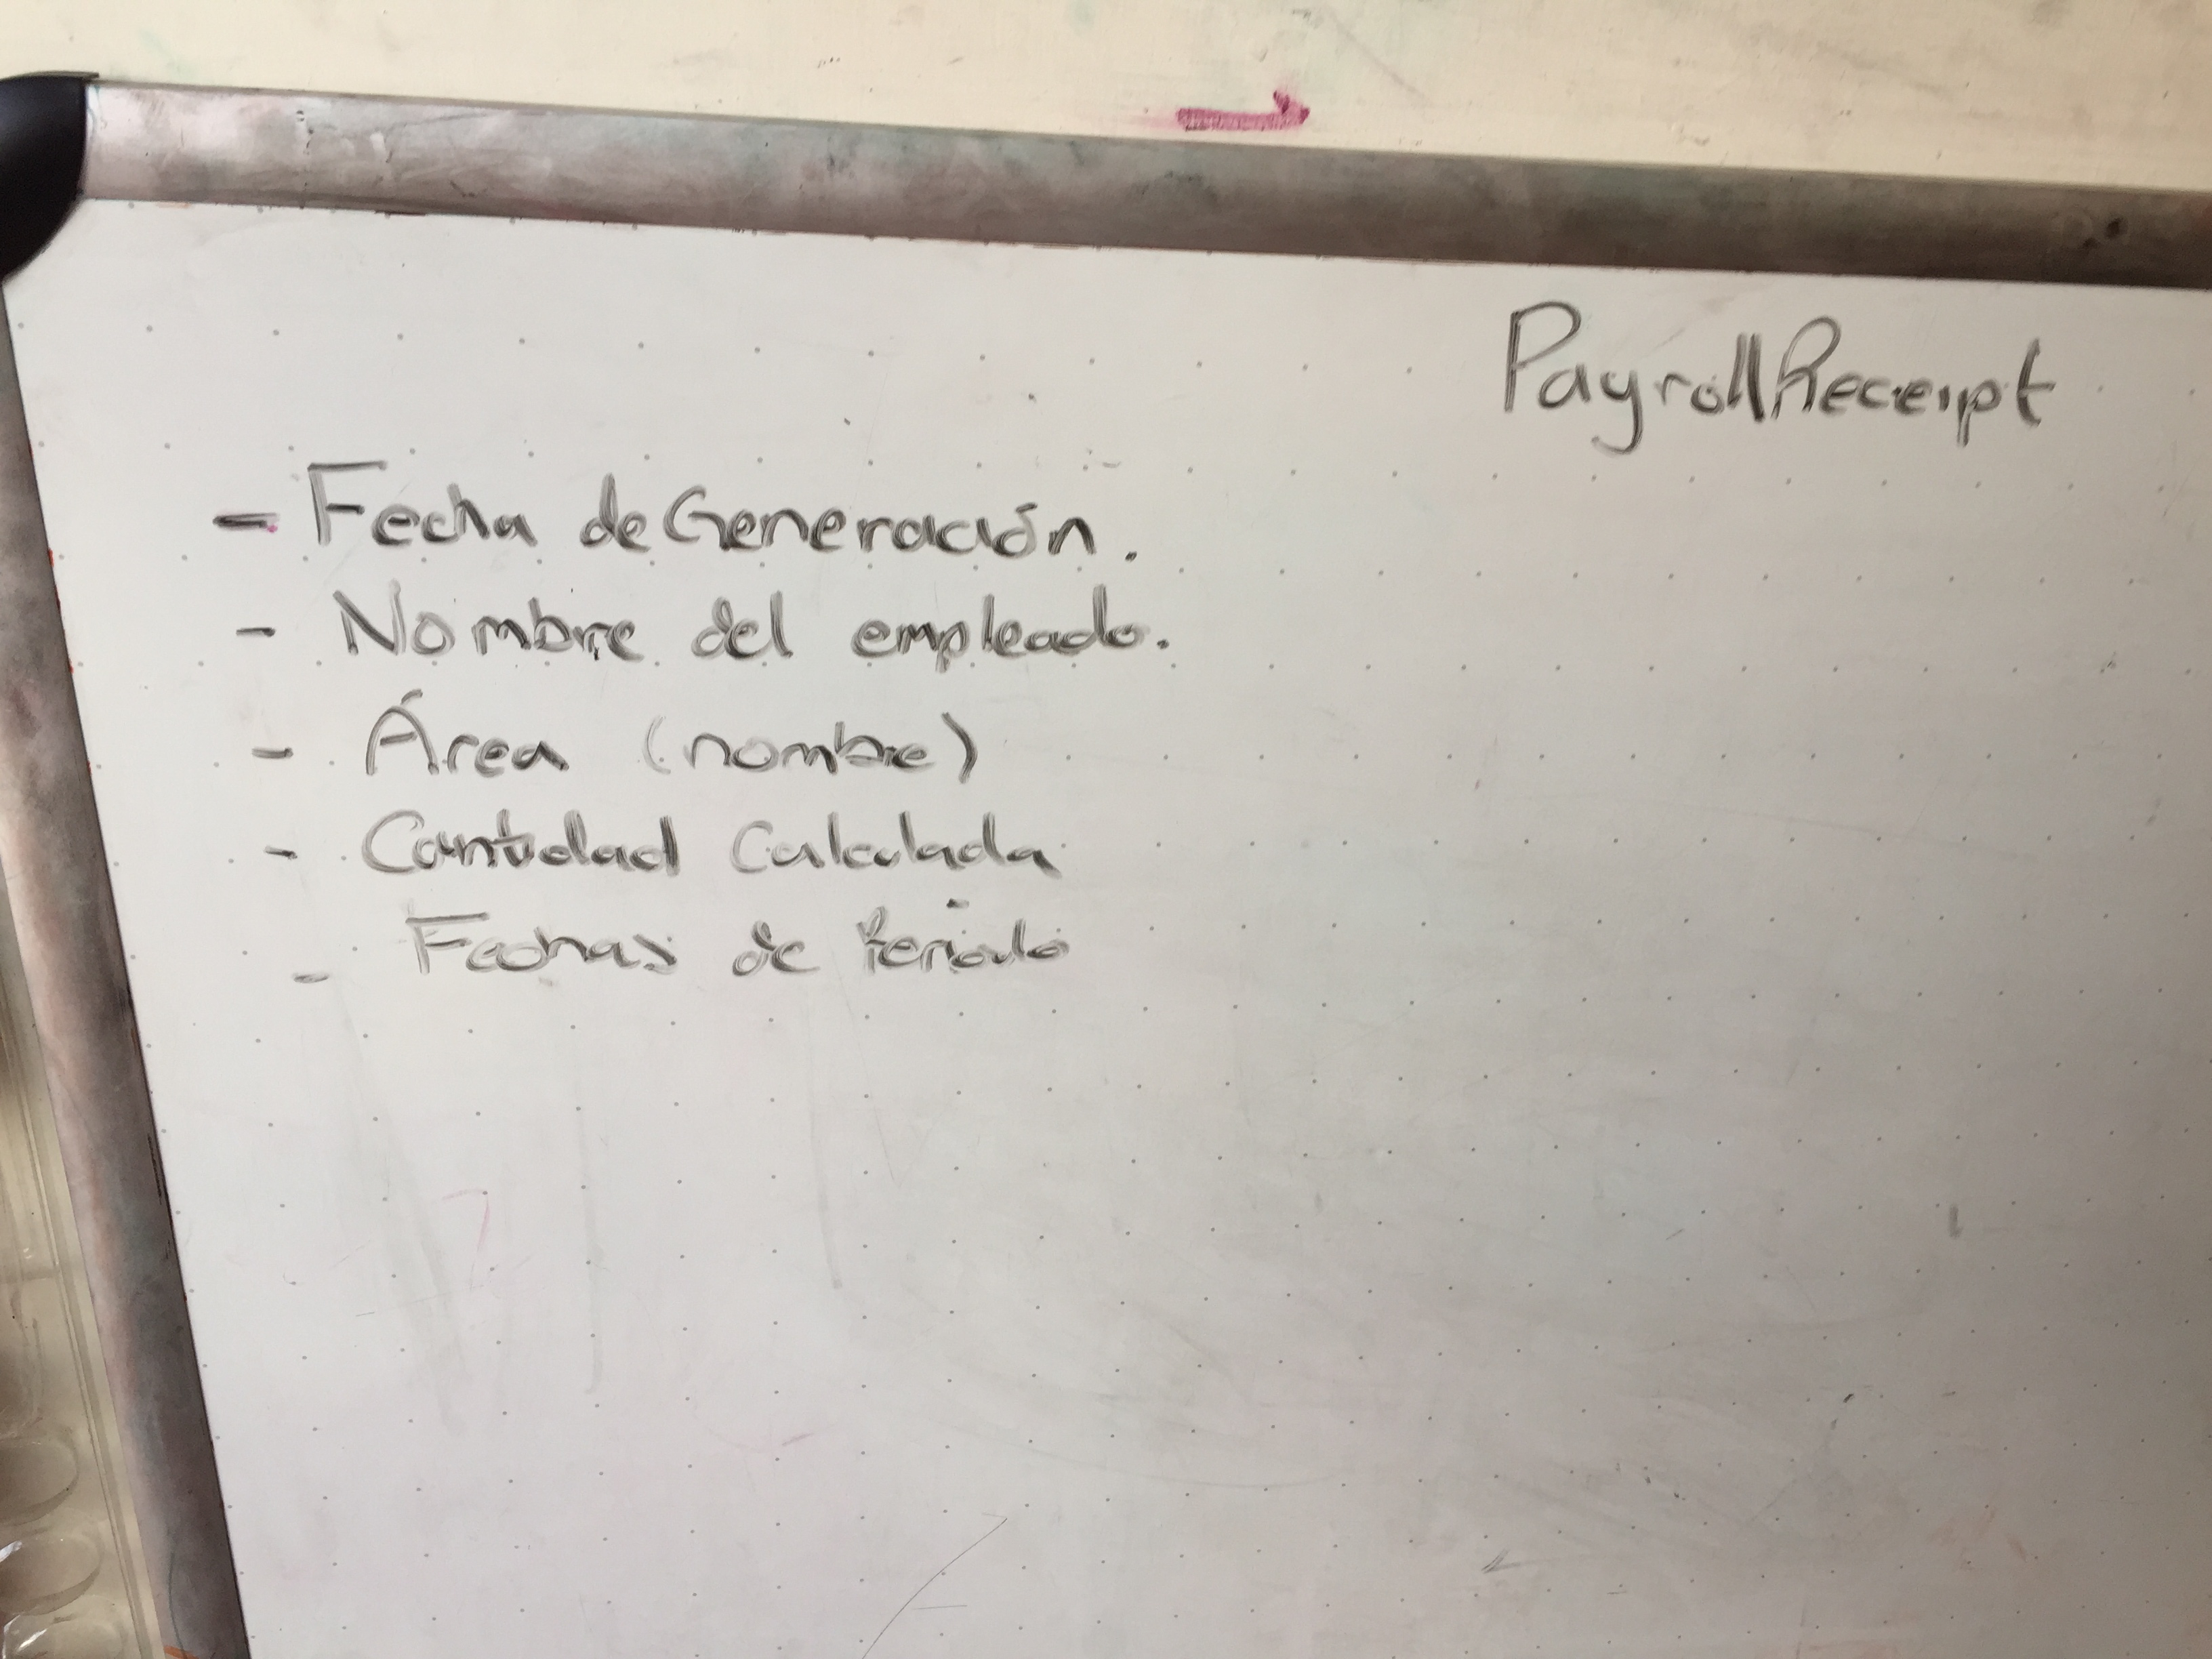 PayrollReceipt
- Fecha de Generación.
- Nombre del empleado.
- Área (nombre)
- Cantidad Calculada
- Fechas de Periodo